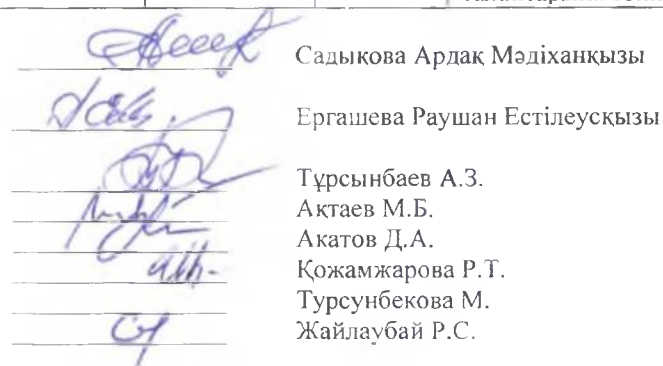 Садыкова Ардақ Мәдіханқызы
Ергашева Раушан Естілеусқызы
Тұрсынбаев А.З.
Ақтаев М.Б.
Акатов Д.А.
Қожамжарова Р.Т.
Турсунбекова М.
Жайлаубай Р.С.